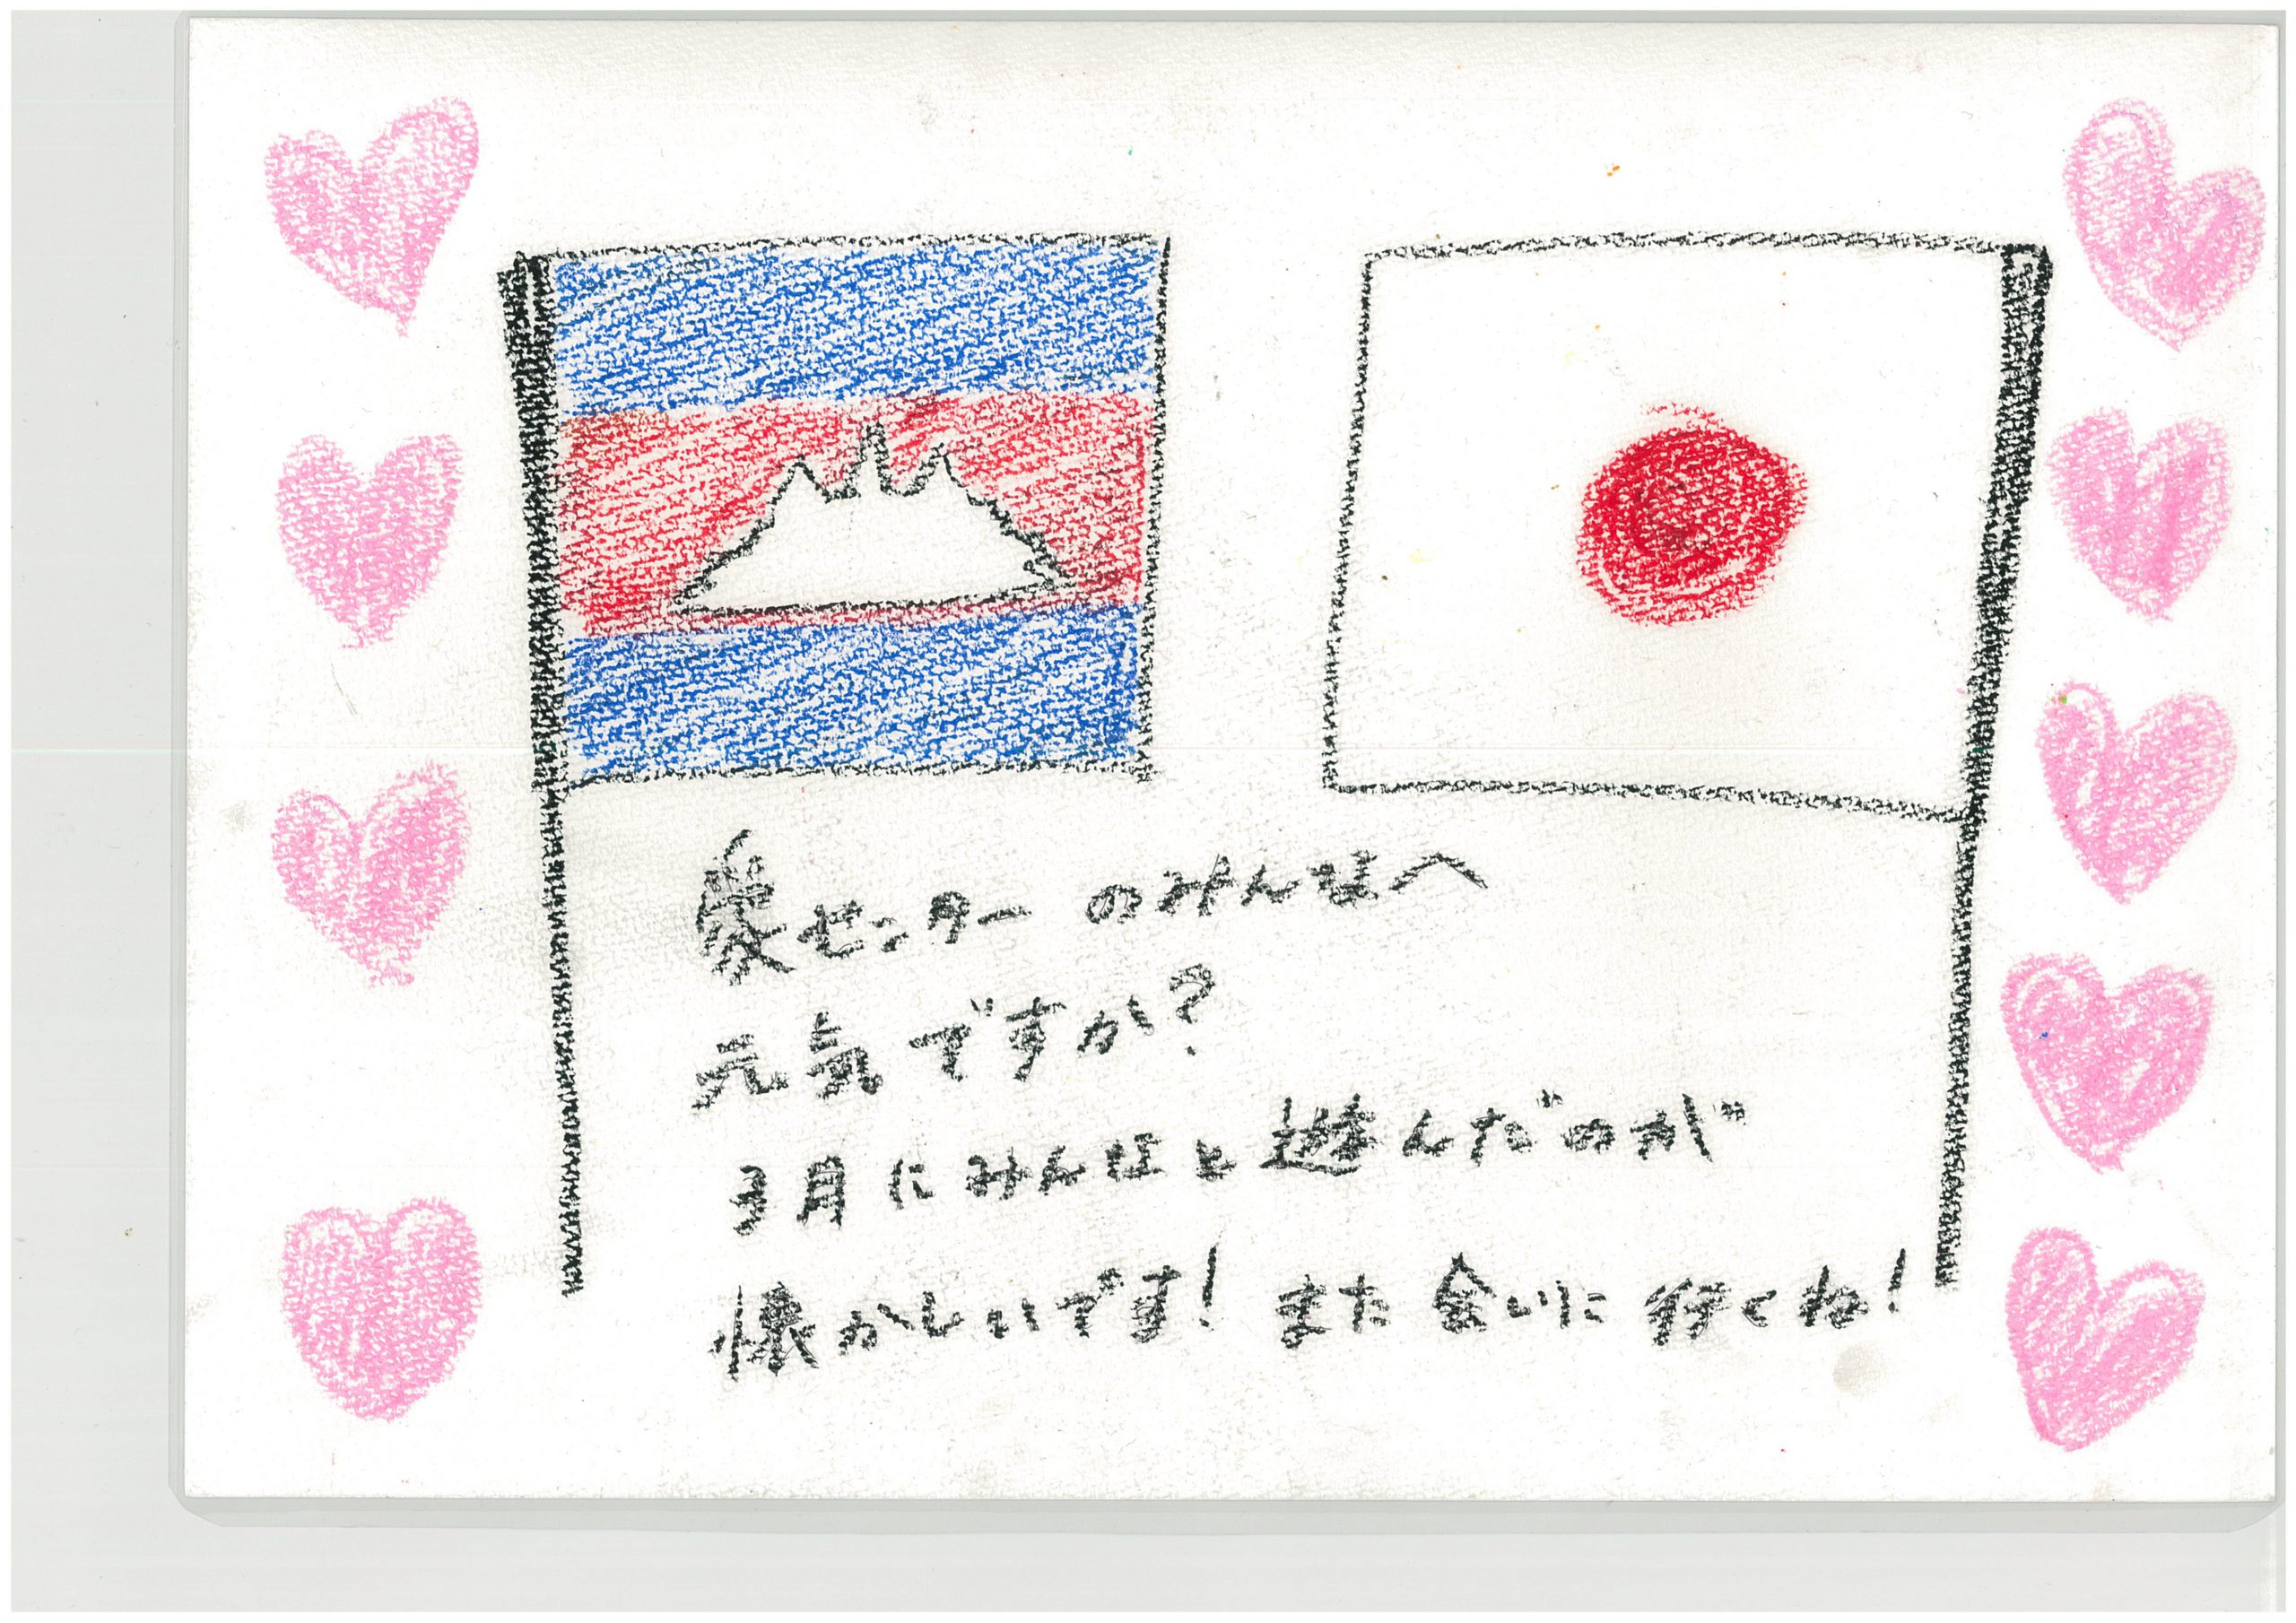 愛センターのみんなへ
元気ですか?
3月にみんなと遊んだのが
懐かしいです! また会いに行くね!